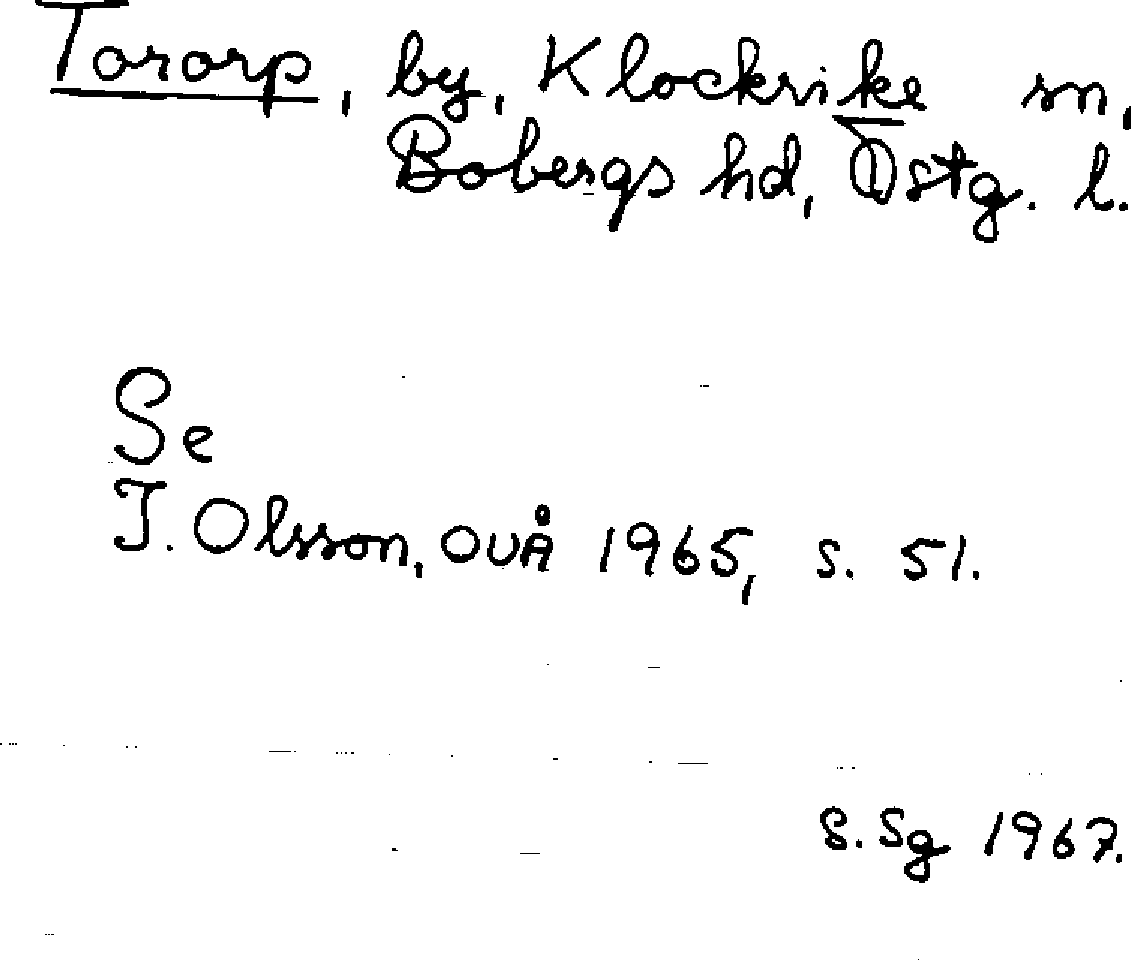 Tororp, by, Klockrike sn,
Bobergs hd, Östg. l.
Se
I. Olsson, OUÅ 1965, s. 51.
S. Sg 1967.